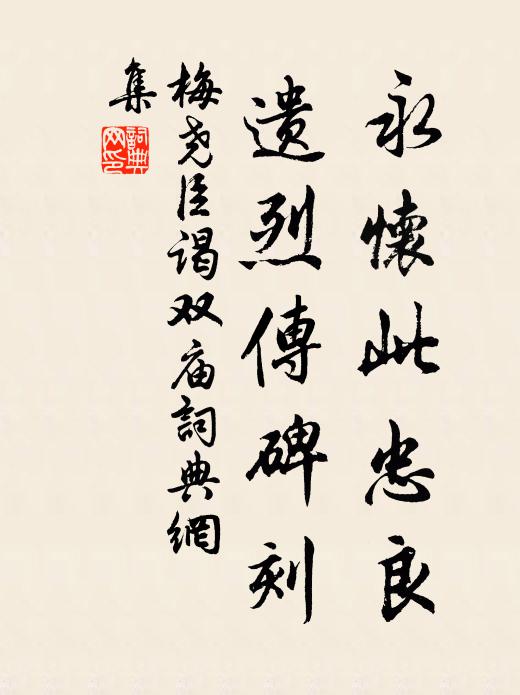 永懷此忠良
遺烈傳碑刻
梅尧臣谒双庙詞典網
集
詞典网印